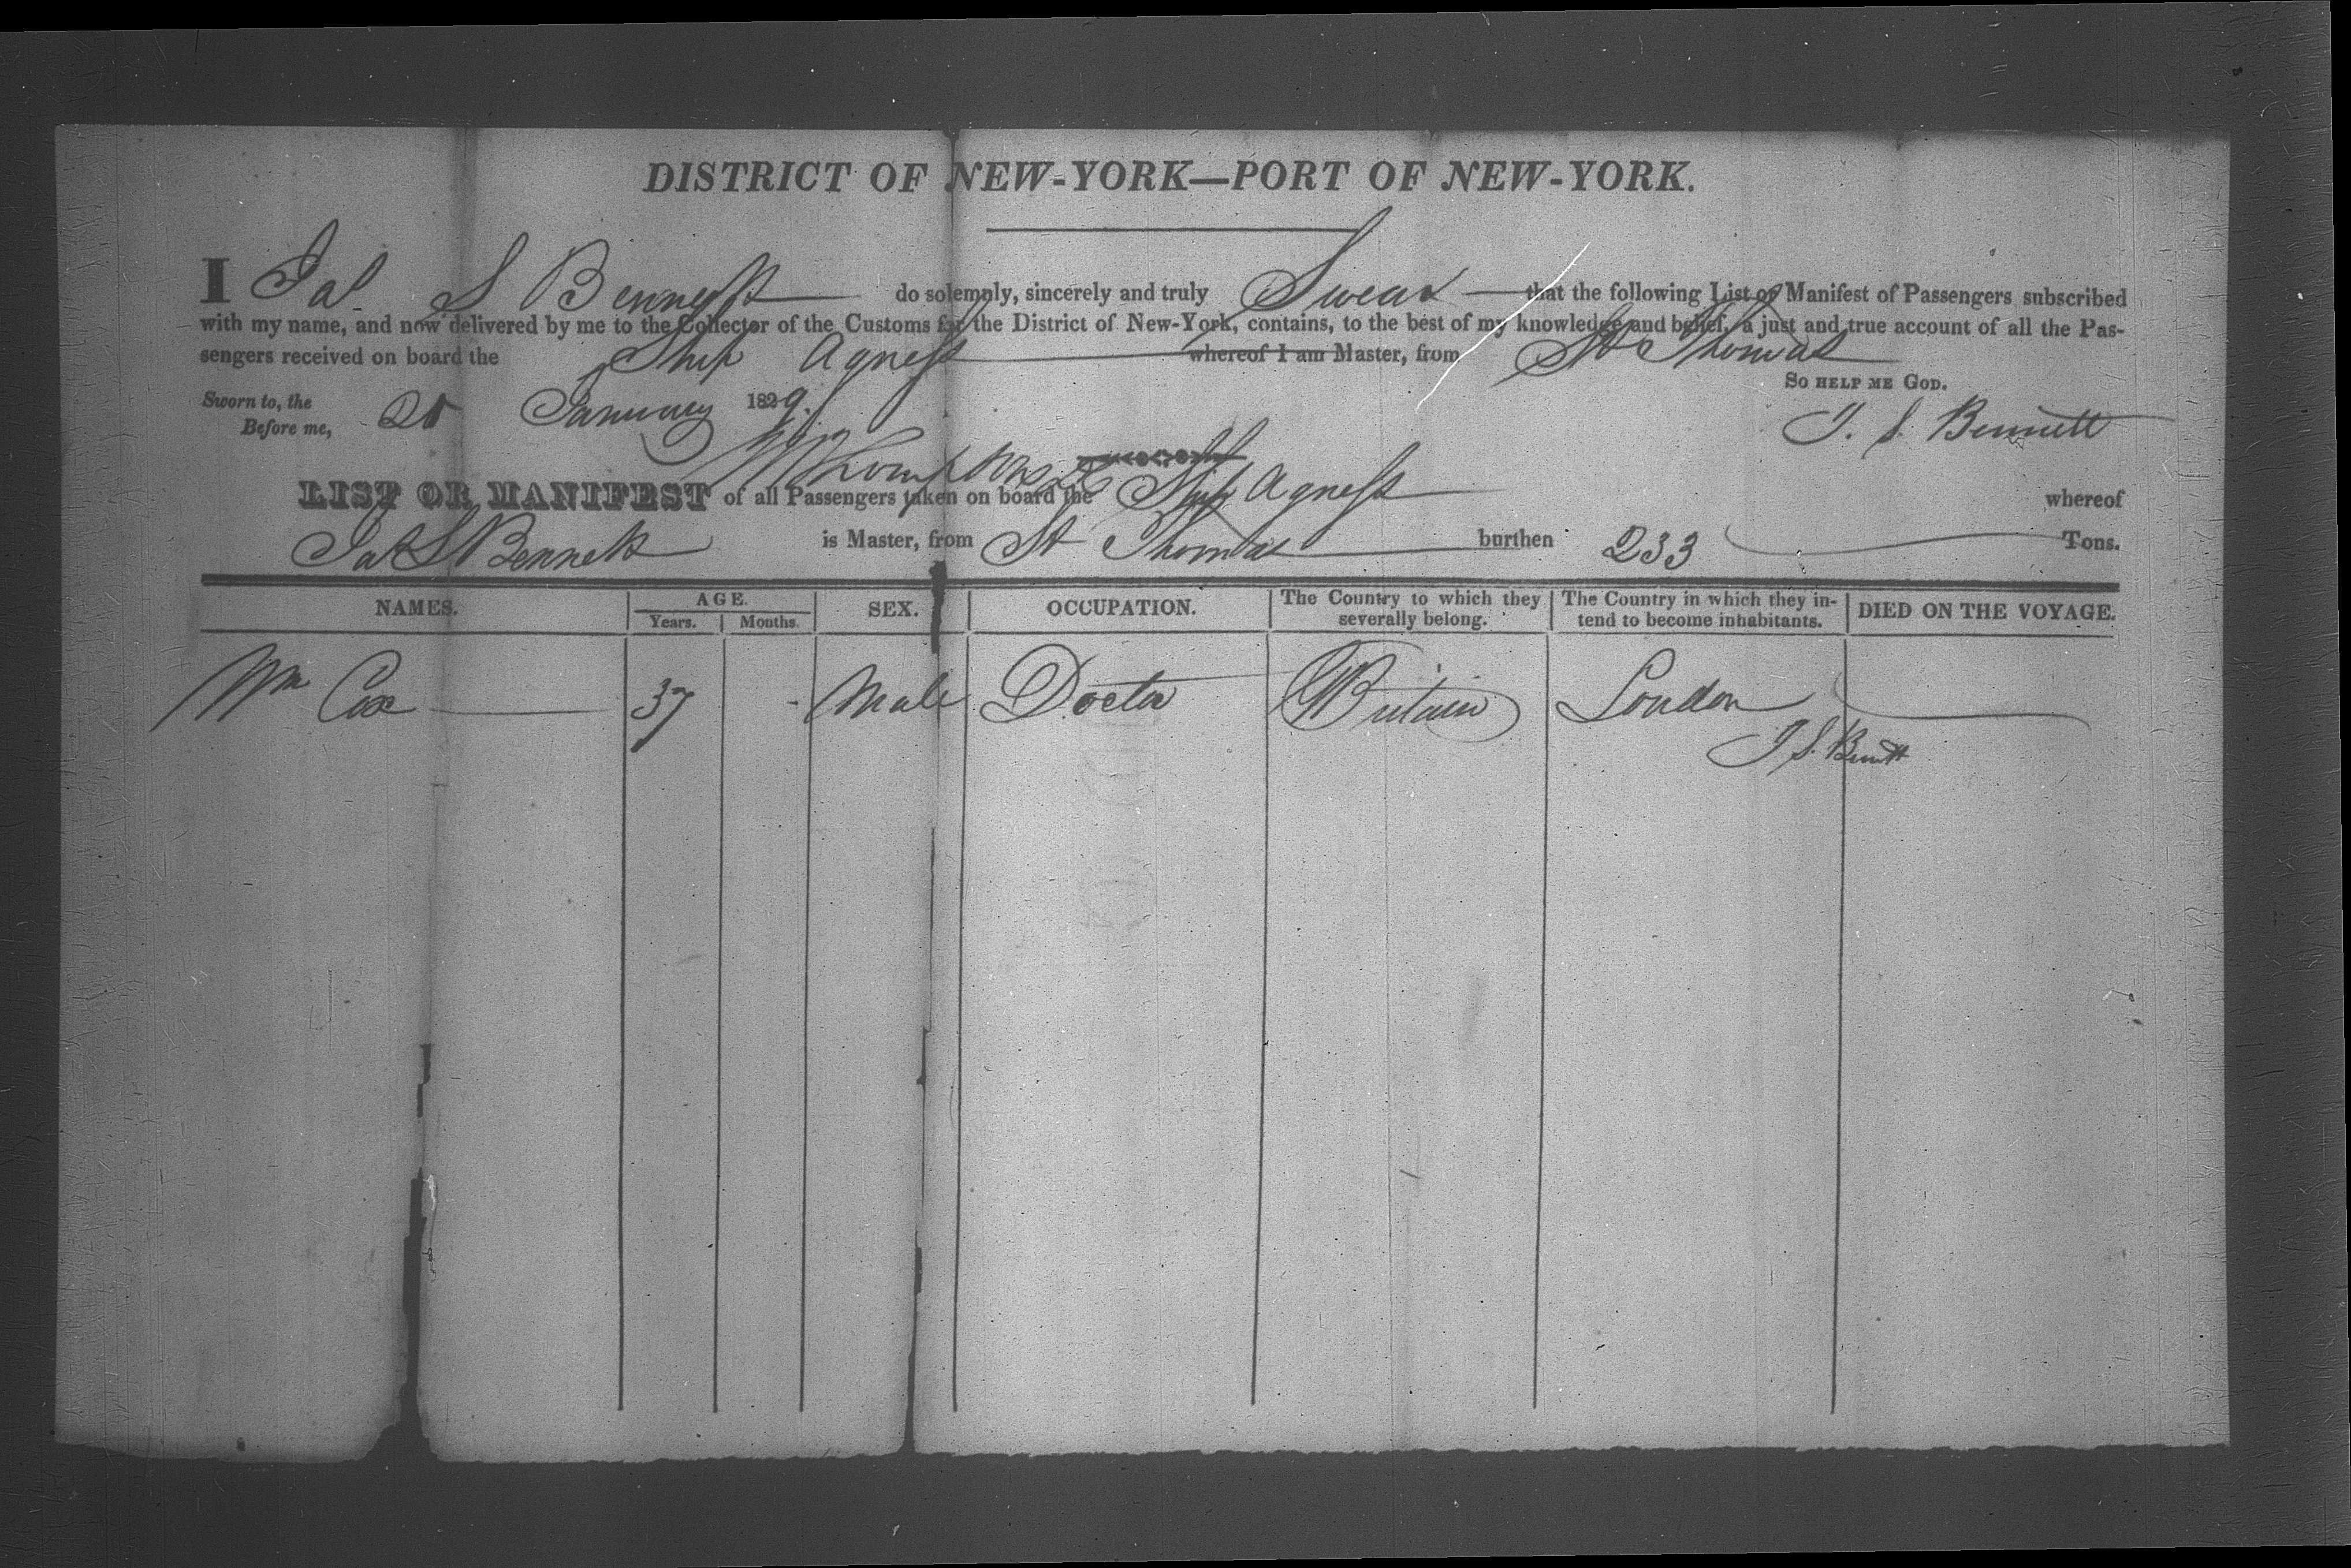 DISTRICT OF NEW-YORK—PORT OF NEW-YORK.
I Jas S Bennett do solemnly, sincerely and truly Swear that the following List or Manifest of Passengers subscribed
with my name, and now delivered by me to the Collector of the Customs for the District of New-York, contains, to the best of my knowledge and belief, a just and true account of all the Pas-
sengers received on board the Ship Agness whereof I am Master, from St Thomas
SO HELP ME GOD.
Sworn to, the January 1829.
Before me,
J. S. Bennett
LIST OR MANIFEST of all Passengers taken on board the Ship Agness whereof
Jas S Bennett is Master, from St Thomas burthen 233 Tons.
NAMES. AGE. Years. Months. SEX. OCCUPATION. The Country to which they severally belong. The Country in which they in-tend to become inhabitants. DIED ON THE VOYAGE.
Wm Cox 37 - Male Doctor G Britain London
J S. Bennett